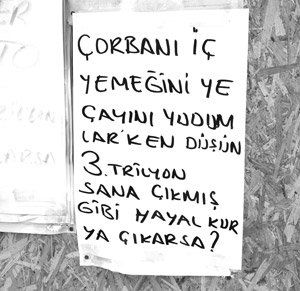 ÇORBANI İÇ
YEMEĞİNİ YE
ÇAYINI YUDUM
LAR'KEN DÜŞÜN
3.TRİLYON
SANA ÇIKMIŞ
GİBİ HAYAL KUR
YA ÇIKARSA?